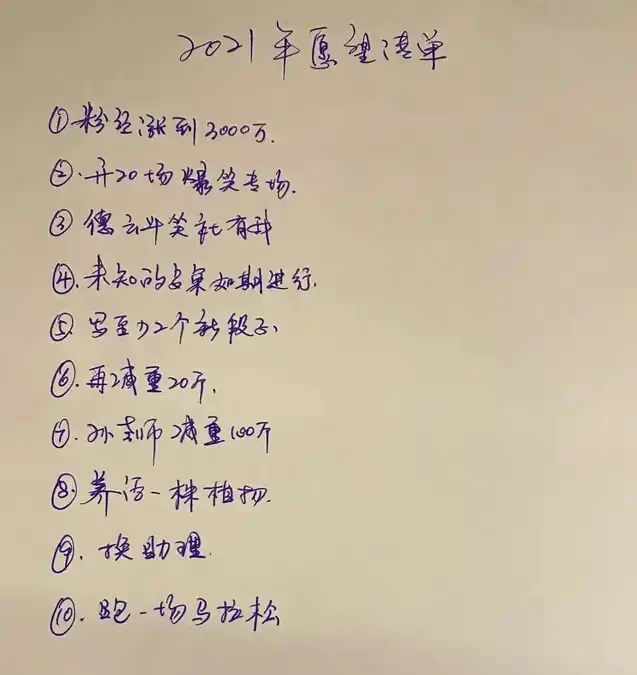 2021年愿望清单
①粉丝涨到3000万.
②.开20场爆笑专场.
③德云斗笑社有我
④.未知的专案如期进行.
⑤.写至少2个新段子、
⑥.再减重20斤.
⑦.孙老师减重100斤
⑧.养活一株植物.
⑨.换助理.
⑩.跑一场马拉松